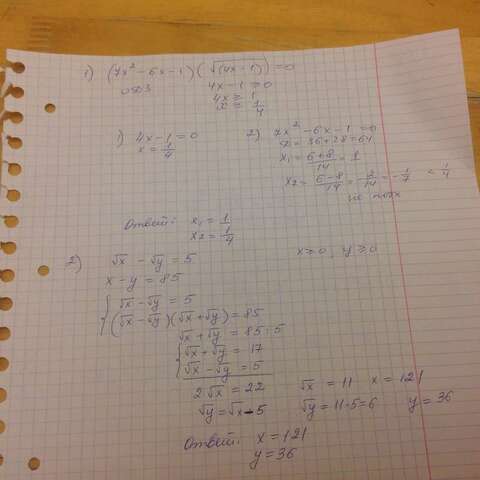 1) (7x² - 6x - 1)(√(4x - 1)) = 0
ОДЗ 4x - 1 ≥ 0
4x ≥ 1
x ≥ 1/4
1) 4x - 1 = 0
x = 1/4
2) 7x² - 6x - 1 = 0
D = 36 + 28 = 64
x₁ = (6+8)/14 = 1
x₂ = (6-8)/14 = -2/14 = -1/7 < 1/4
не подх
Ответ: x₁ = 1
x₂ = 1/4
2) √x - √y = 5 x ≥ 0, y ≥ 0
x - y = 85
{ √x - √y = 5
(√x - √y)(√x + √y) = 85
√x + √y = 85 : 5
{ √x + √y = 17
√x - √y = 5
2√x = 22 √x = 11 x = 121
√y = √x - 5 √y = 11 - 5 = 6 y = 36
Ответ: x = 121
y = 36